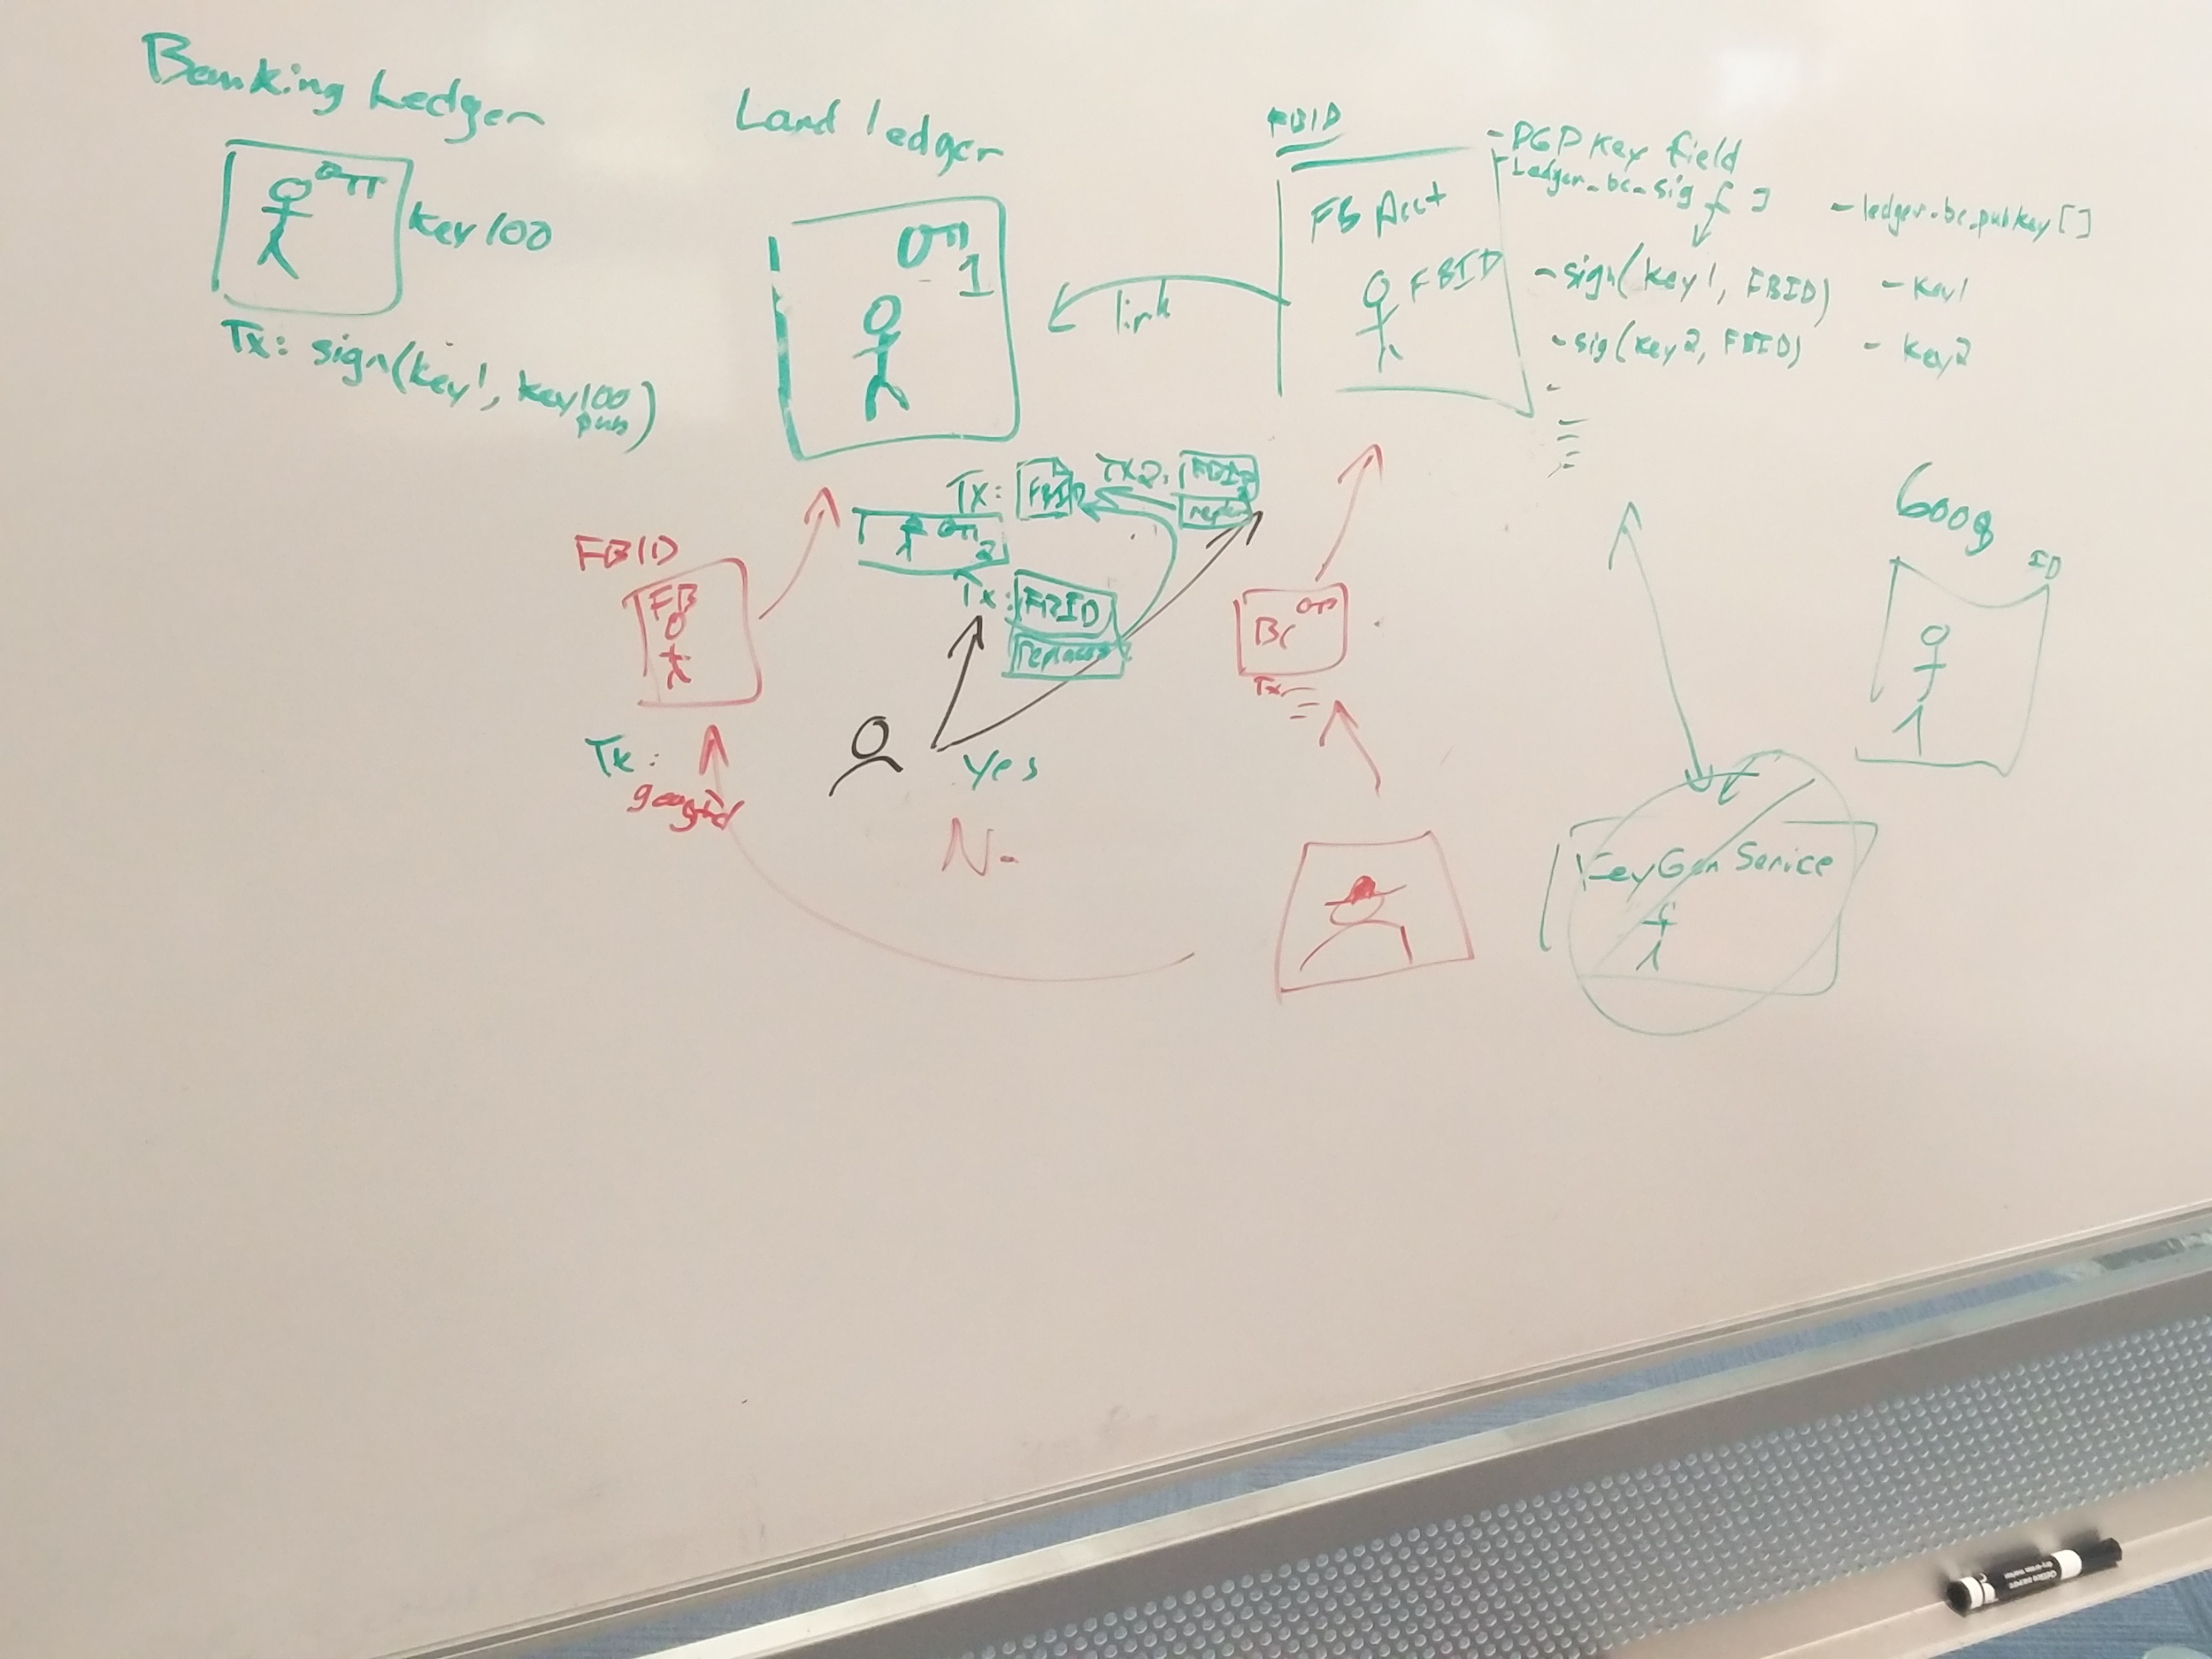 Banking Ledger
Key 100
Tx: sign(key1, key100
pub)
Land ledger
1
link
FBID
FB Acct
FBID
- PGP Key field
- Ledger_bc_sig [ ]
- ledger.bc.pubkey[]
- sign(key1, FBID)
- Key1
- sig(key2, FBID)
- Key2
Tx: FBID
TX2:
2
Tx: FBID
replaces
FBID
FB
Tx:
googid
Yes
No
BC
Tx
Goog
ID
KeyGen Service